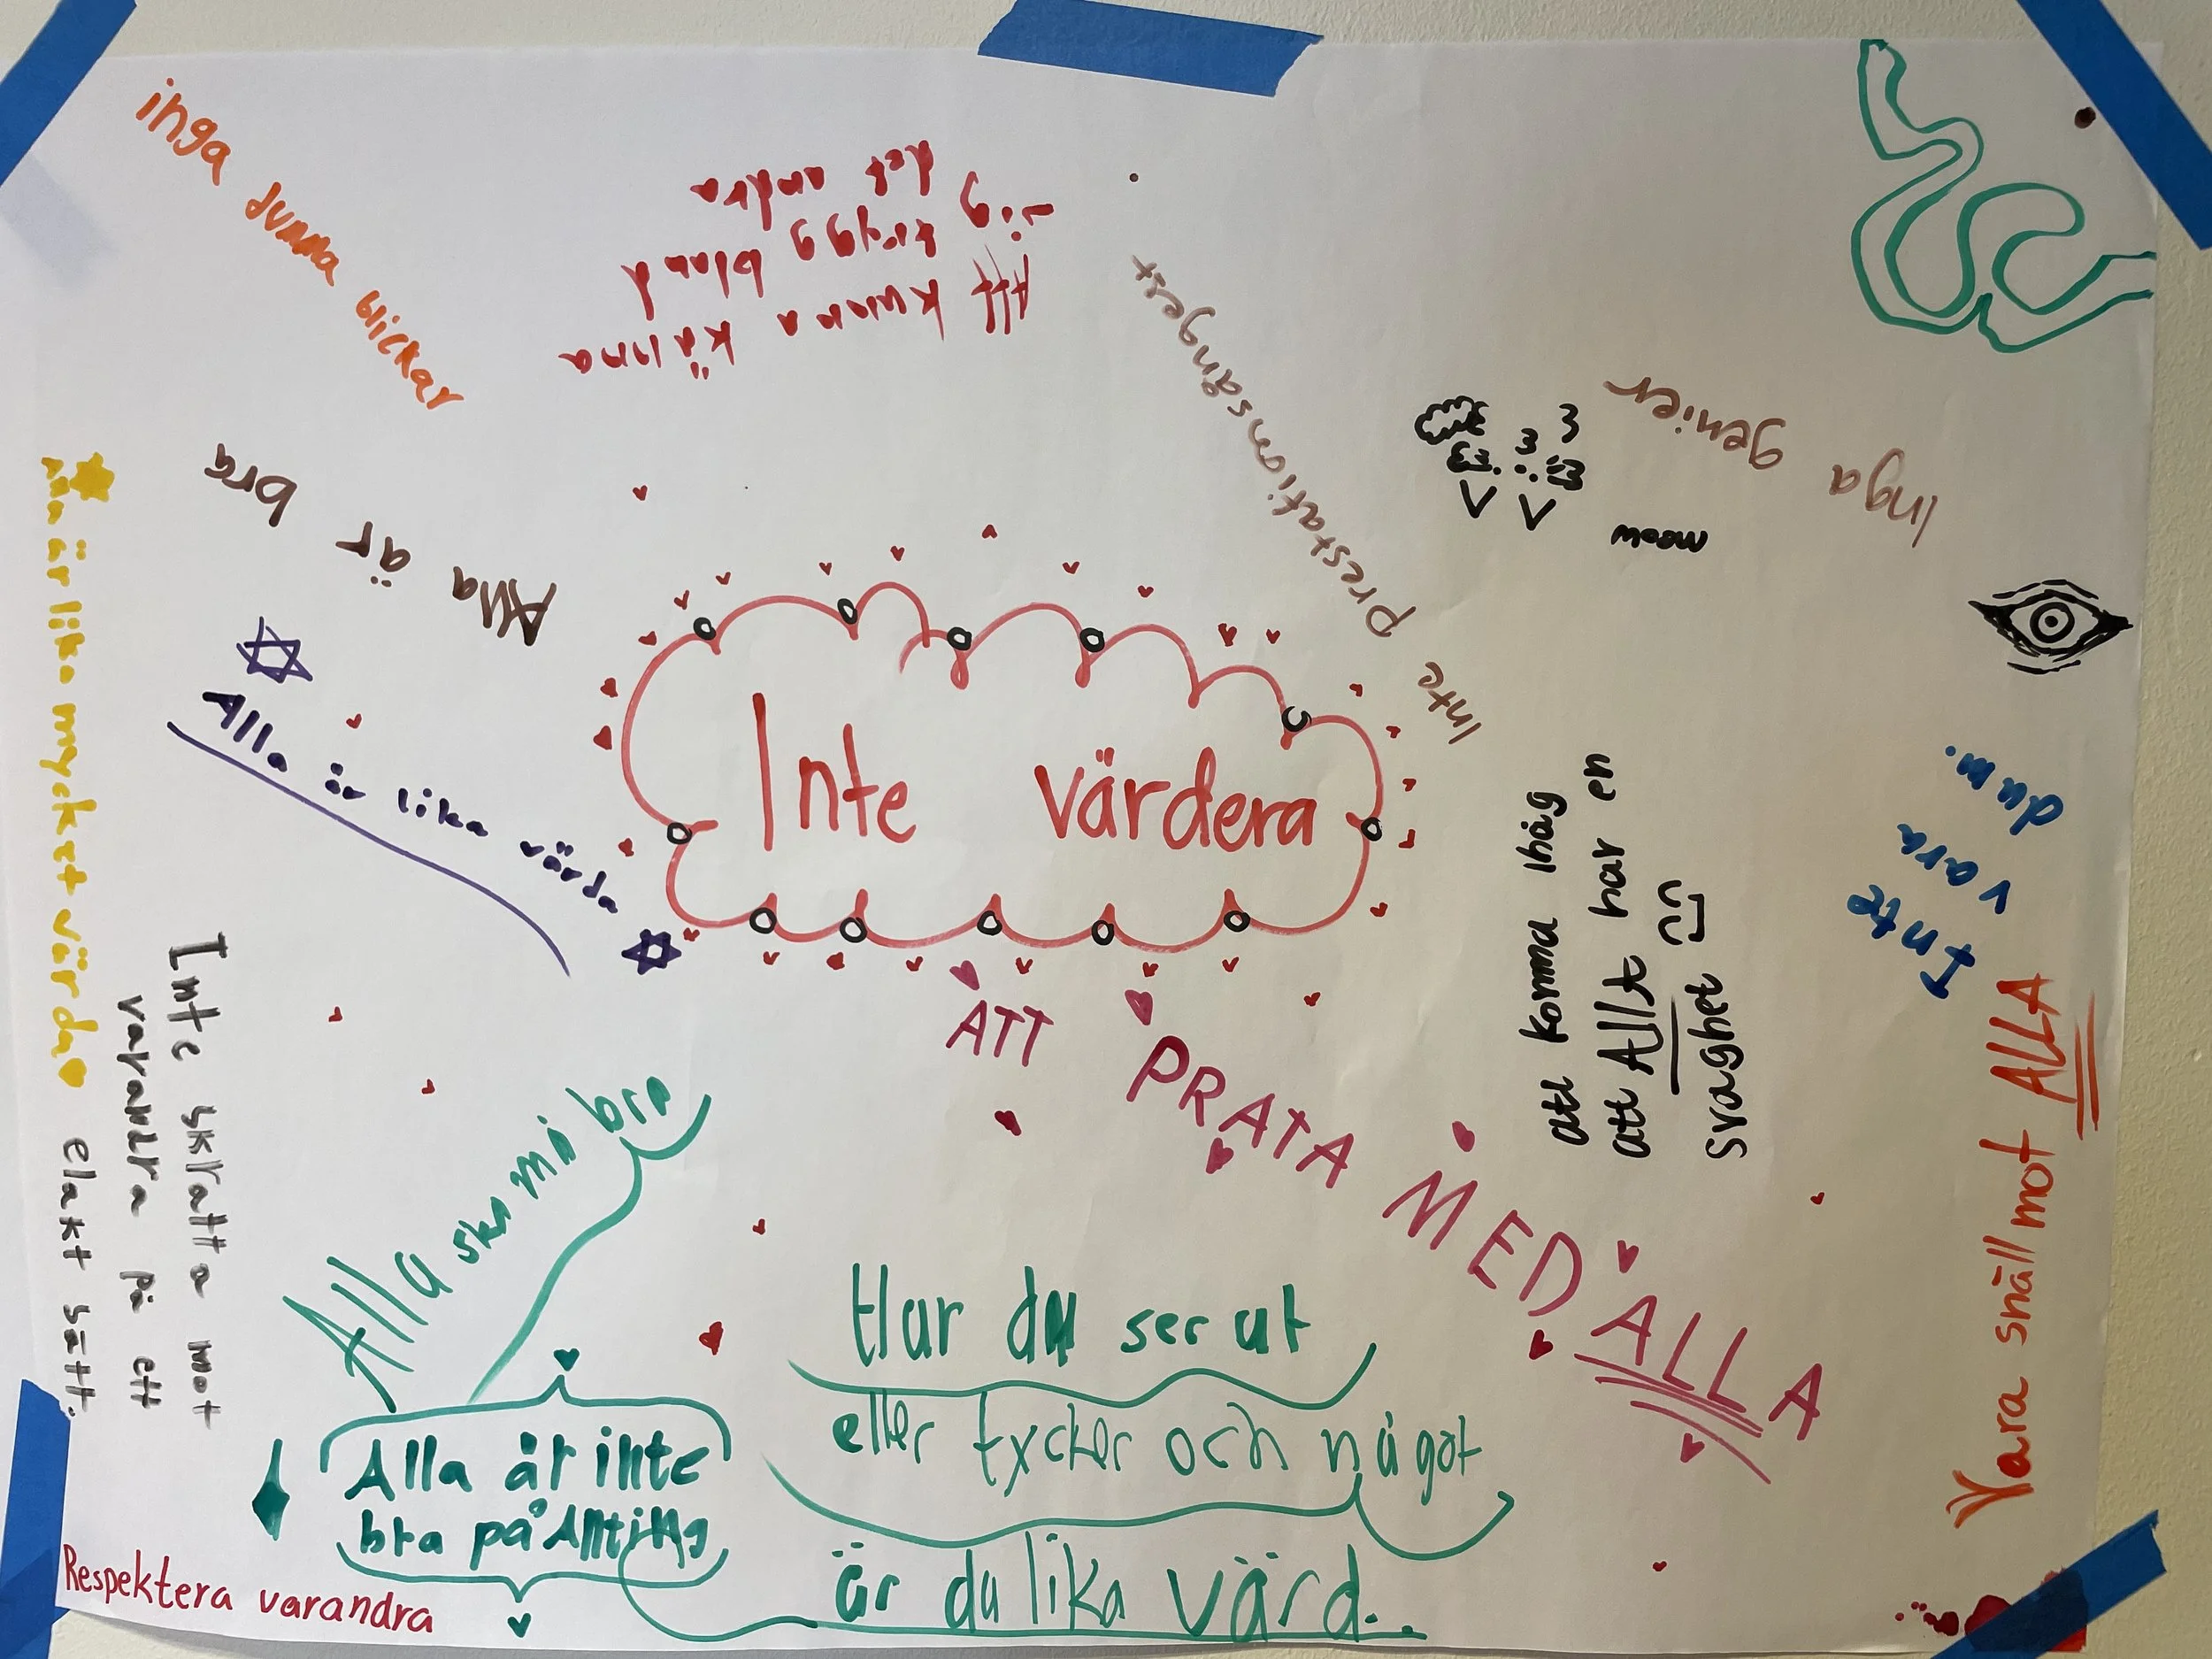 inga dumma blickar
Att kunna känna
trygg bland
det andra
Inte prestationsångest
Inga genier
meow
Alla är bra
Alla är lika mycket värda
Alla är lika värda
Inte värdera
Inte vara
dum.
att komma ihåg
att Allt har en
svaghet
Inte skratta mot
varandra på ett
elakt sätt.
ATT PRATA MED ALLA
Vara snäll mot ALLA
Alla ska må bra
Alla är inte
bra på Allting
Hur du ser ut
eller tycker och något
är du lika värd.
Respektera varandra